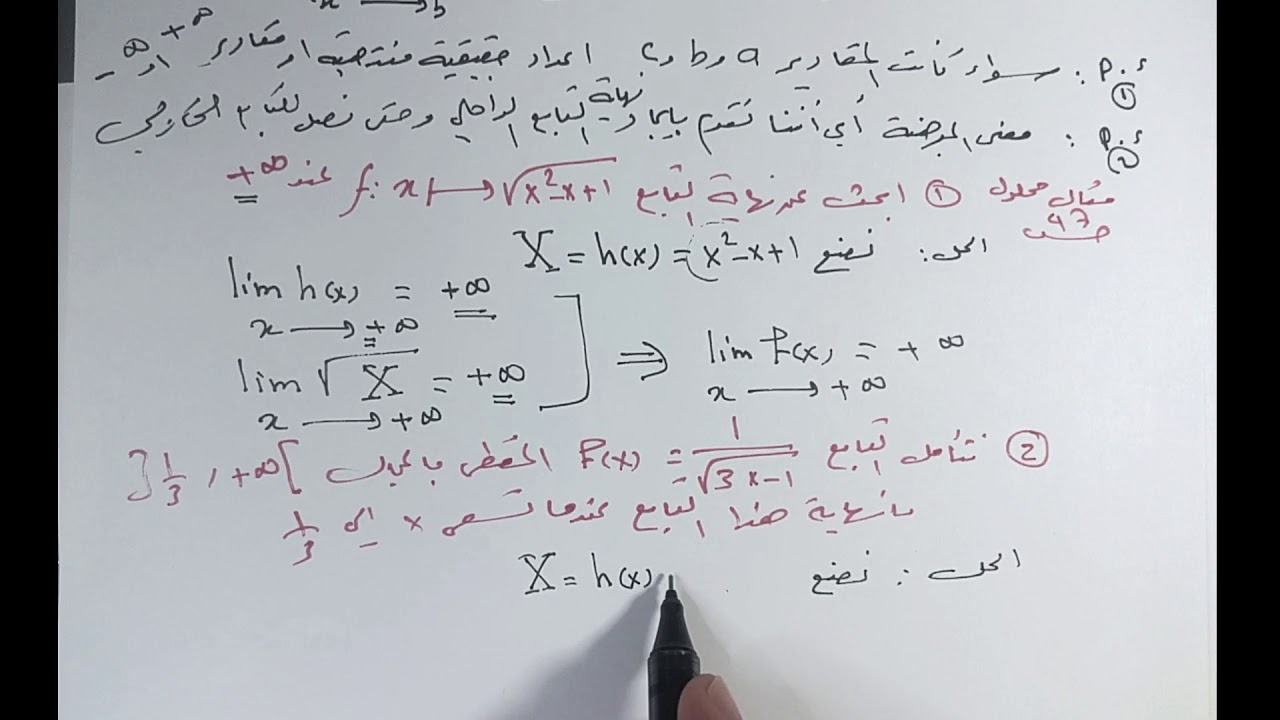 x → b
م.ء ① : سواء كانت المقادير a و b و c أعداد حقيقية منتهية أو مقادير +∞ أو -∞
م.ء ② : معنى المبرهنة أي أننا نقدم بإيجاد نهاية التابع الداخلي وحتى نصل للتابع الخارجي
مثال محلول ① ابحث عن نهاية التابع f: x ↦ √(x²-x+1) عند +∞
47
الحل: نضع X = h(x) = x²-x+1
lim h(x) = +∞
x → +∞
lim √X = +∞
x → +∞
⇒ lim f(x) = +∞
x → +∞
② نتأمل التابع f(x) = 1/√(3x-1) المعطى بالمجال ]1/3 , +∞[
ما نهاية هذا التابع عندما تسعى x إلى 1/3
الحل: نضع X = h(x)